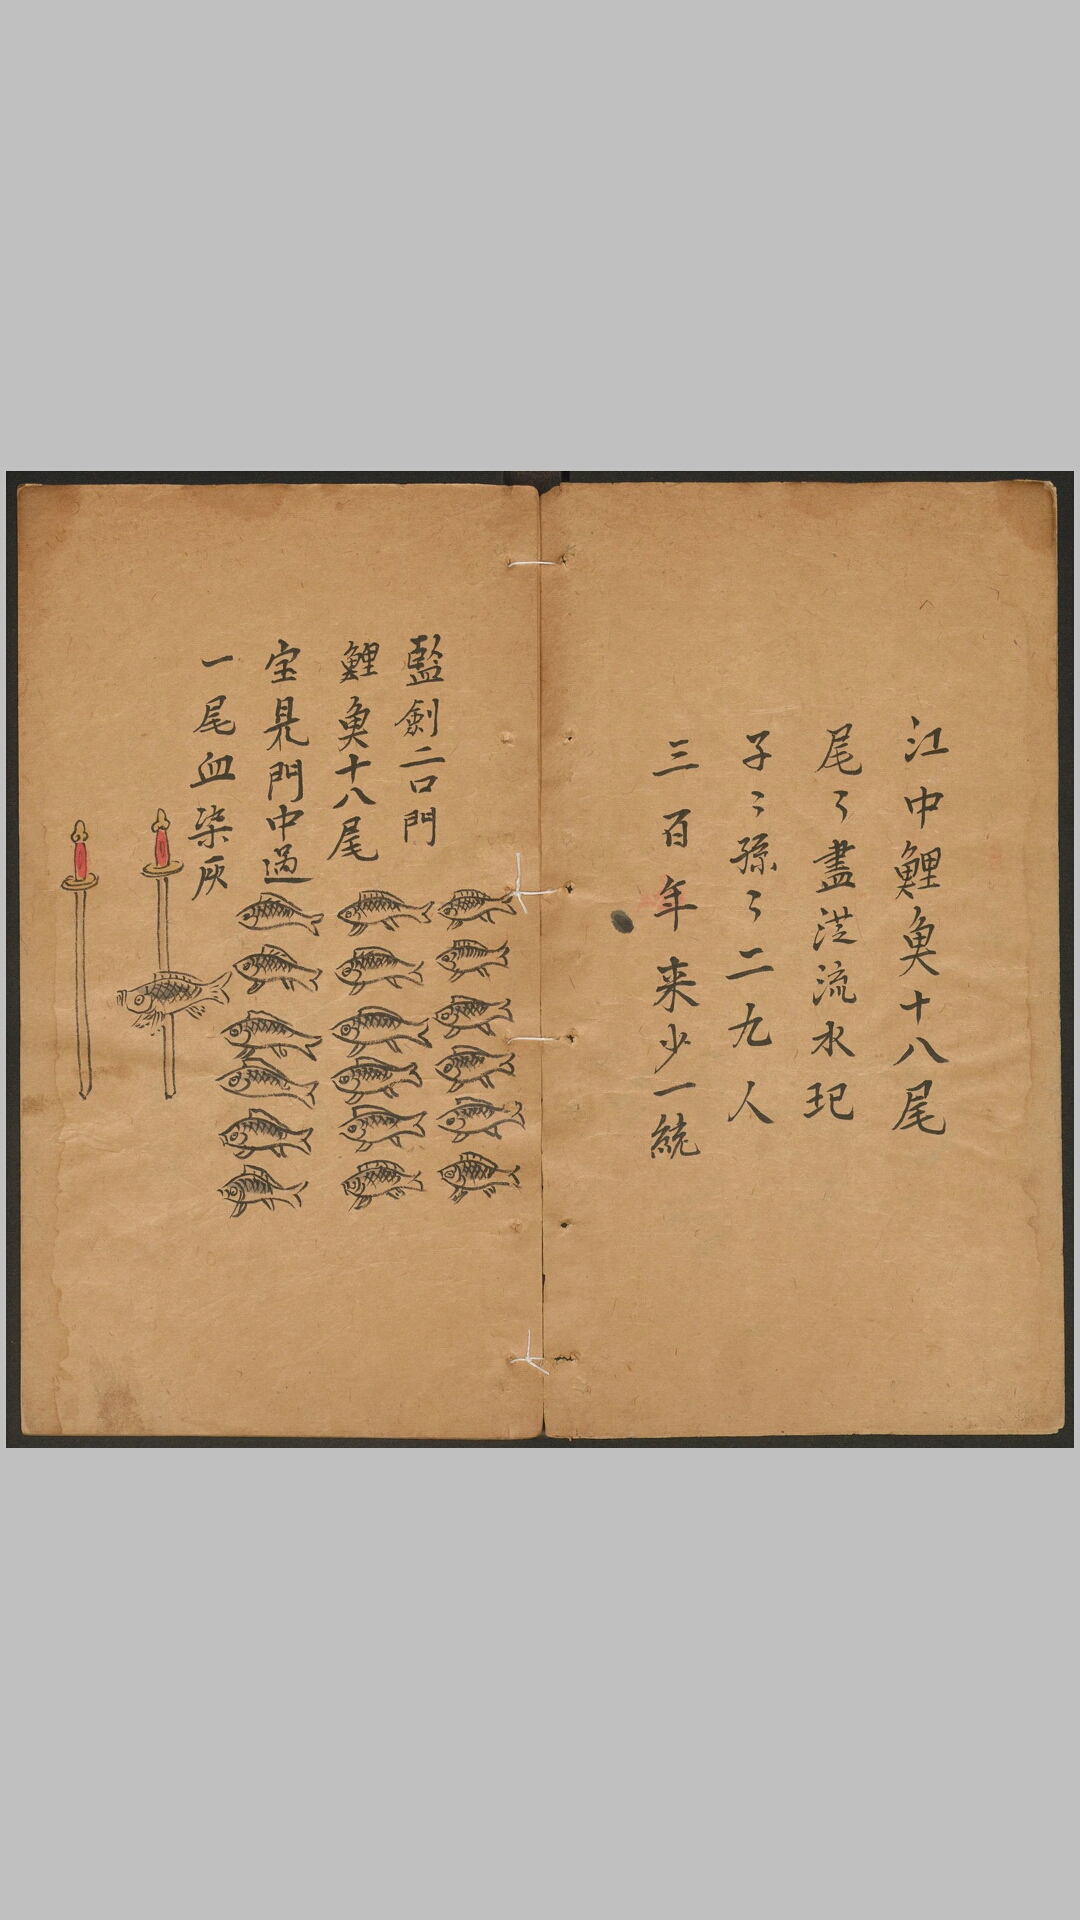 江中鯉魚十八尾
尾〻盡滛流水玘
子〻孫〻二九人
三百年来少一統
藍劍二口門
鯉魚十八尾
宝見門中過
一尾血染灰